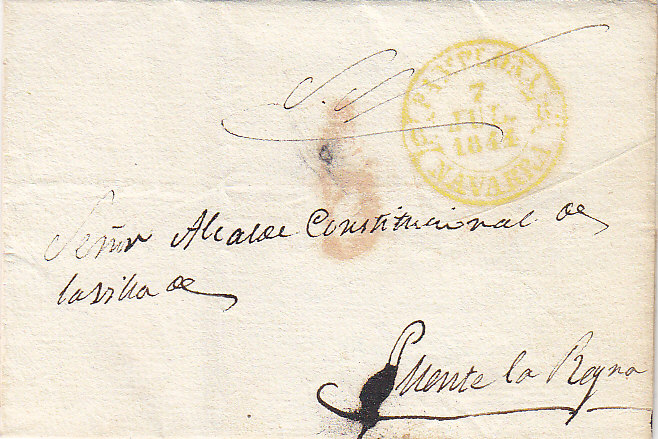 S. N.
PAMPLONA
7
JUL.
1844
NAVARRA
Señor Alcalde Constitucional de
la villa de
Puente la Reyna